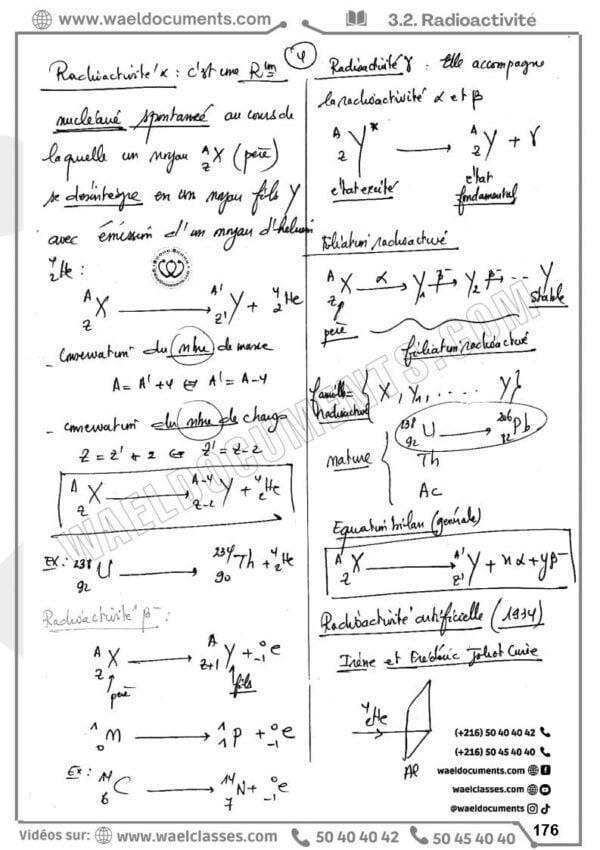 www.waeldocuments.com
3.2. Radioactivité
4
Radioactivité α : c'est une R
nucléaire spontanée au cours de
laquelle un noyau ᴬ_Z X (père)
se désintègre en un noyau fils Y
avec émission d'un noyau d'hélium
⁴₂He :
ᴬ_Z X ⟶ ᴬ'_Z' Y + ⁴₂He
- conservation du nbre de masse
A = A' + 4 ⇔ A' = A-4
- conservation du nbre de charge
Z = Z' + 2 ⇔ Z' = Z-2
ᴬ_Z X ⟶ ᴬ⁻⁴_Z-2 Y + ⁴₂He
Ex : ²³⁸₉₂U ⟶ ²³⁴₉₀Th + ⁴₂He
Radioactivité β⁻ :
ᴬ_Z X ⟶ ᴬ_Z+1 Y + ⁰₋₁e
père fils
¹₀n ⟶ ¹₁P + ⁰₋₁e
Ex : ¹⁴₆C ⟶ ¹⁴₇N + ⁰₋₁e
Radioactivité γ : Elle accompagne
la radioactivité α et β
ᴬ_Z Y* ⟶ ᴬ_Z Y + γ
état excité état
fondamental
Filiation radioactive
ᴬ_Z X —α→ Y₁ —β⁻→ Y₂ —β⁻→ ... Y
père stable
filiation radioactive
famille = { X, Y₁, . . . . Y}
radioactive
²³⁸₉₂U ⟶ ²⁰⁶₈₂Pb
nature { Th
Ac
Equation bilan (générale)
ᴬ_Z X ⟶ ᴬ'_Z' Y + xα + yβ⁻
Radioactivité artificielle (1934)
Irène et Frédéric Joliot Curie
⁴₂He
Al
WAELDOCUMENTS.COM
(+216) 50 40 40 42
(+216) 50 45 40 40
waeldocuments.com
waelclasses.com
@waeldocuments
Vidéos sur: www.waelclasses.com 50 40 40 42 50 45 40 40
176